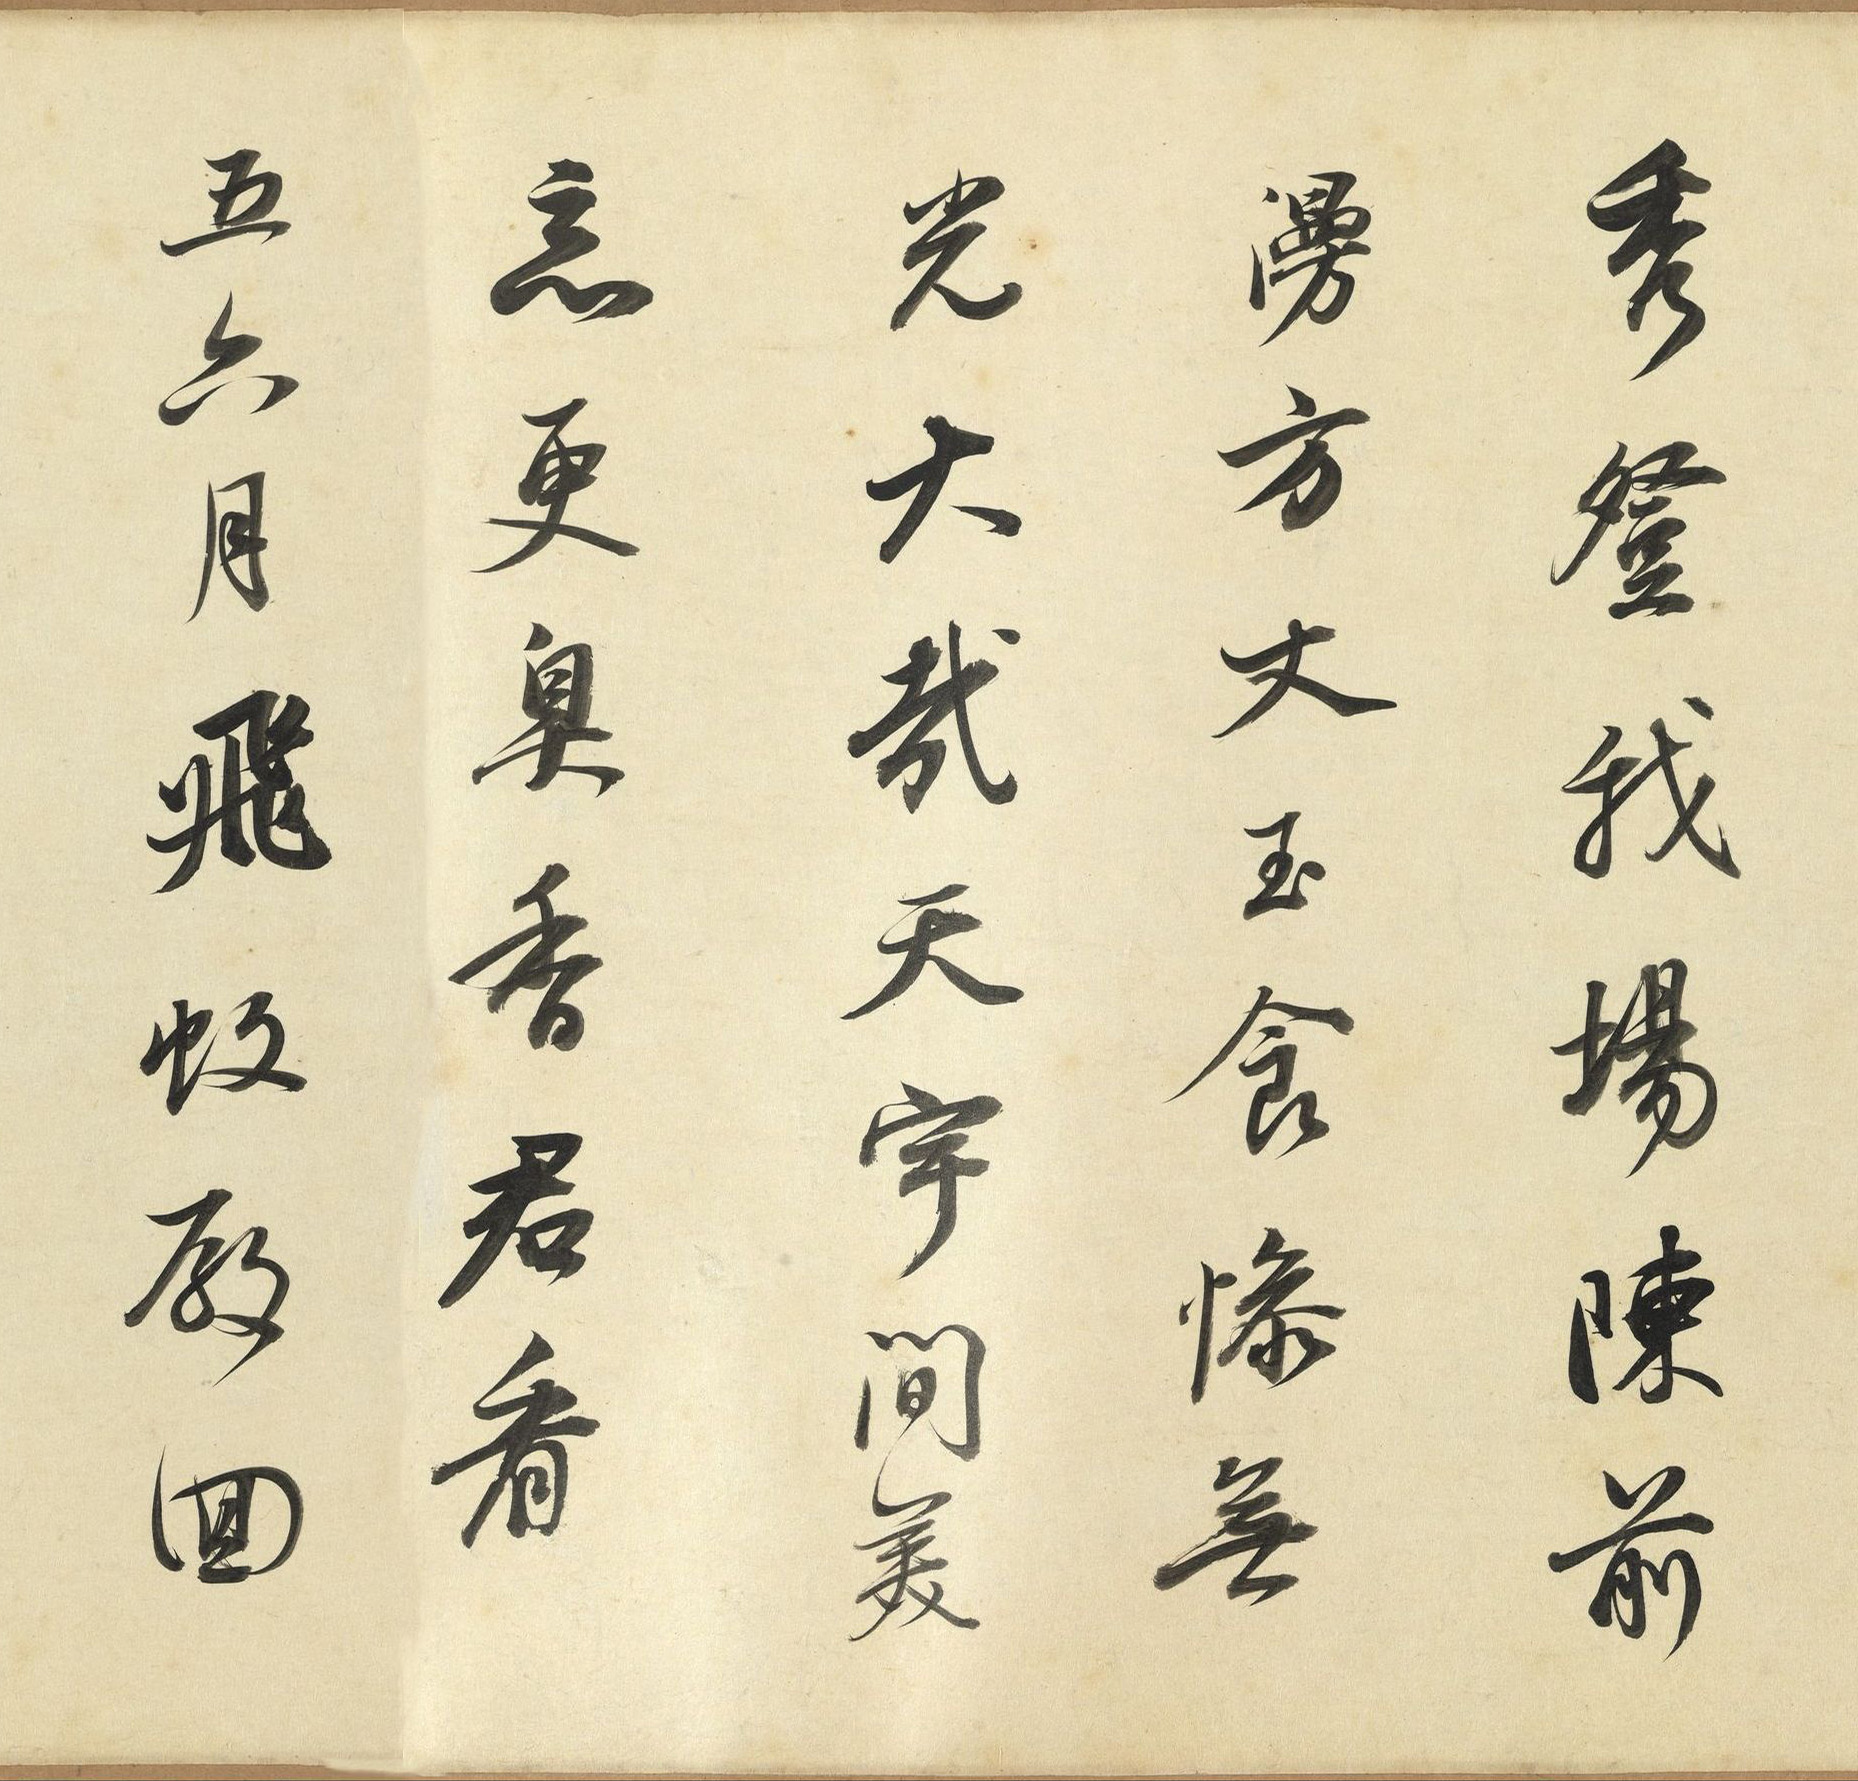 秀登我場陳前
漫方丈玉食慘無
光大哉天宇間美
惡更臭香君看
五六月飛蚊殷回